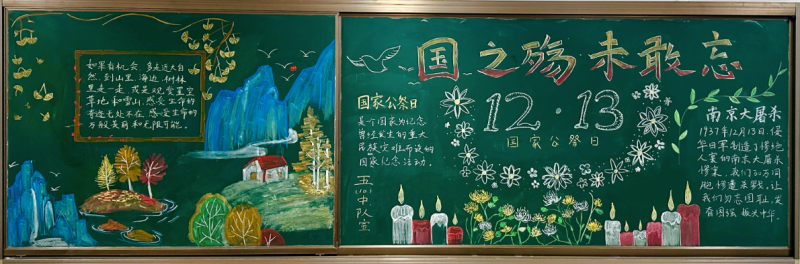 如果有机会,多走近大自
然,到山里、海边、树林
里走一走,或是观赏星空
草地和雪山,感受生命的
奇迹无处不在,感受生命的
万般美好和无限可能。
国之殇 未敢忘
国家公祭日
是个国家为纪念
曾经发生的重大
民族灾难而设的
国家纪念活动。
五(10)中队宣
12·13
国家公祭日
南京大屠杀
1937年12月13日,侵
华日军制造了惨绝
人寰的南京大屠杀
惨案,我们30万同
胞惨遭杀戮,让
我们勿忘国耻,发
奋图强,振兴中华。